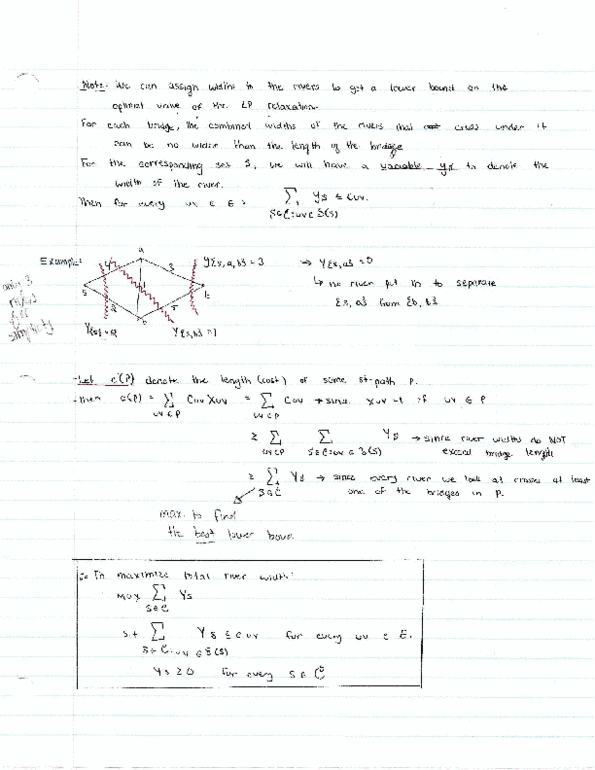 Note: We can assign widths to the rivers to get a lower bound on the
optimal value of the LP relaxation.
For each bridge, the combined widths of the rivers that cross under it
can be no wider than the length of the bridge
For the corresponding set S, we will have a variable ys to denote the
width of the river.
Then for every uv ∈ E:
∑ ys ≤ Cuv.
S∈C:uv∈δ(S)
Example:
a
4
3
y{s,a,b} = 3
→ y{s,a} = 0
s
1
t
↳ no river put in to separate
{s, a} from {b, t}
2
5
b
y{s} = 2
y{s,b} = 1
only 3
rivers
for
simplicity
-Let c(P) denote the length (cost) of some st-path P.
-then c(P) = ∑ Cuv Xuv = ∑ Cuv → since Xuv = 1 if uv ∈ P
uv∈P uv∈P
≥ ∑ ∑ ys → since river widths do NOT
uv∈P S∈C:uv∈δ(S) exceed bridge length
≥ ∑ ys → since every river we look at crosses at least
S∈C one of the bridges in P.
max. to find
the best lower
∴ To maximize total river width:
max ∑ ys
S∈C
s.t ∑ ys ≤ cuv for every uv ∈ E.
S∈C:uv∈δ(S)
ys ≥ 0 for every S∈C